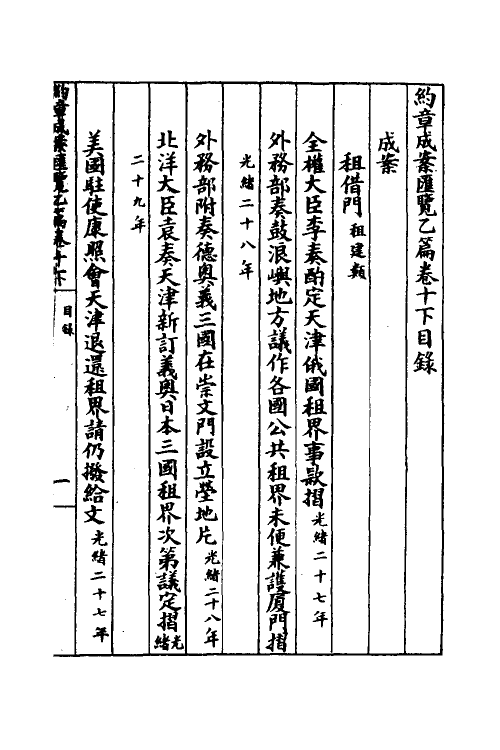 約章成案匯覽乙篇卷十下目錄
成案
租借門租建類
全權大臣李奏酌定天津俄國租界事款摺光緒二十七年
外務部奏鼓浪嶼地方議作各國公共租界未便兼護厦門摺
光緒二十八年
外務部附奏德奧義三國在崇文門設立營地片光緒二十八年
北洋大臣袁奏天津新訂義奧日本三國租界次第議定摺光緒
二十九年
美國駐使康照會天津退還租界請仍撥給文光緒二十七年
約章成案匯覽乙篇卷十下 目錄 一